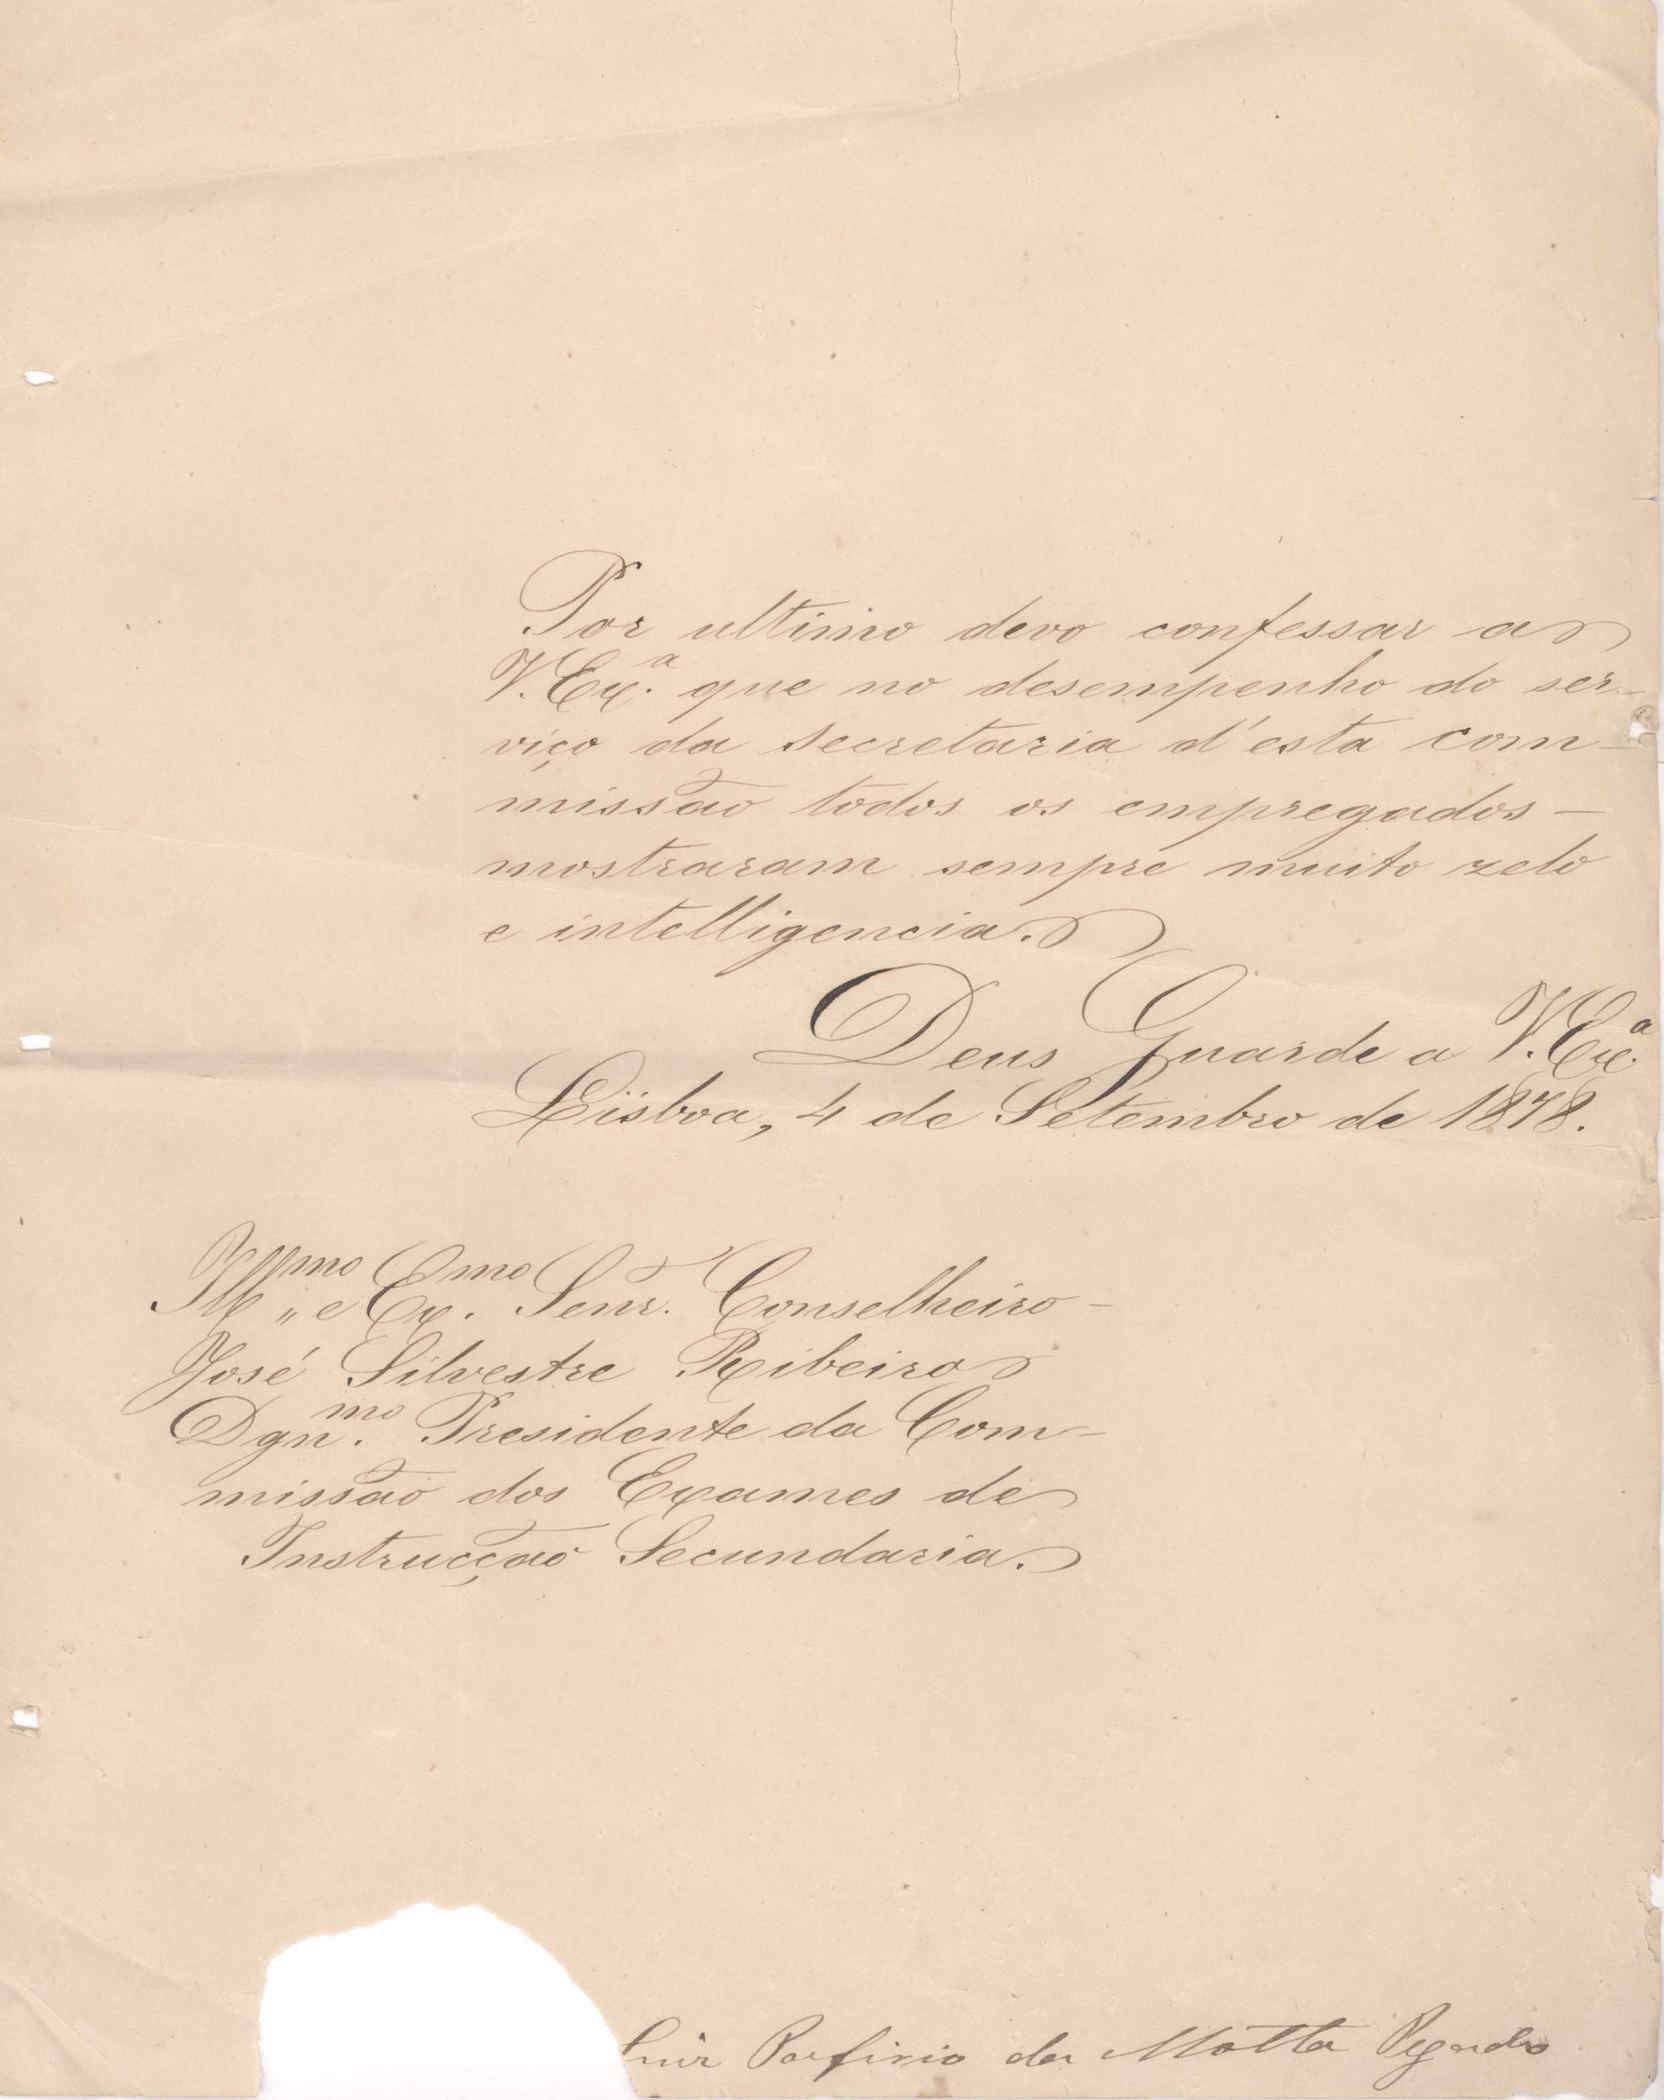 Por ultimo devo confessar a
V. Ex.ª que no desempenho do ser-
viço da secretaria d'esta com-
missão todos os empregados -
mostraram sempre muito zelo
e intelligencia.
Deus Guarde a V. Ex.ª
Lisboa, 4 de Setembro de 1878.
Ill.mo e Ex.mo Senr. Conselheiro -
José Silvestre Ribeiro
Dgn.mo Presidente da Com-
missão dos Exames de
Instrucção Secundaria.
Luiz Porfirio da Motta Pegado